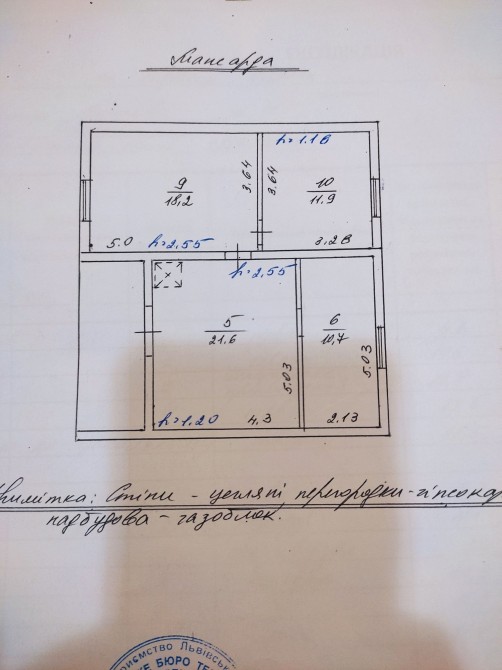 Мансарда
h=1.18
9
18,2
3.64
3.64
10
11.9
5.0
h=2,55
3,28
h=2,55
5
21.6
6
10,7
5.03
5.03
h=1,20
4.3
2.13
Примітка: Стіни - цегляні перегородки-гіпсокар
надбудова - газоблок.
риємство Львівськ
Е БЮРО ТЕ